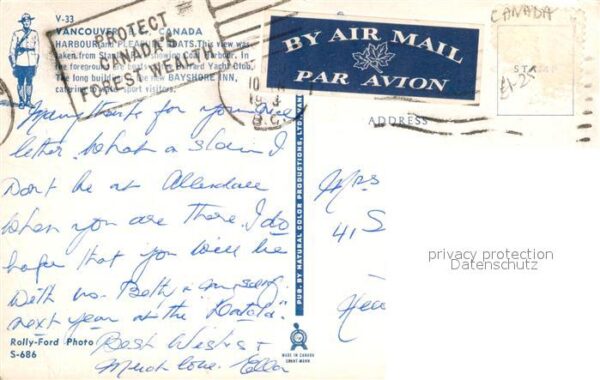 V-33
VANCOUVER, B.C., CANADA
HARBOUR and PLEASURE BOATS. This view was
taken from Stanley Park showing Coal Harbour. In
the foreground are boats of the Burrard Yacht Club.
The long building is the new BAYSHORE INN,
catering to sport visitors.
PROTECT
CANADA'S
FOREST WEALTH
B.C.
BY AIR MAIL
PAR AVION
CANADA
STAMP
£1-25
ADDRESS
Many thanks for your nice
letter. What a shame I
Don't be at Allendale
When you are there. I do
hope that you will be
With us. Beth &
next year at the
Best Wishes &
Much love. Ella
Mrs
41, S
Hea
privacy protection
Datenschutz
PUB. BY NATURAL COLOR PRODUCTIONS, LTD., VAN
Rolly-Ford Photo
S-686
MADE IN CANADA
GRANT-MANN